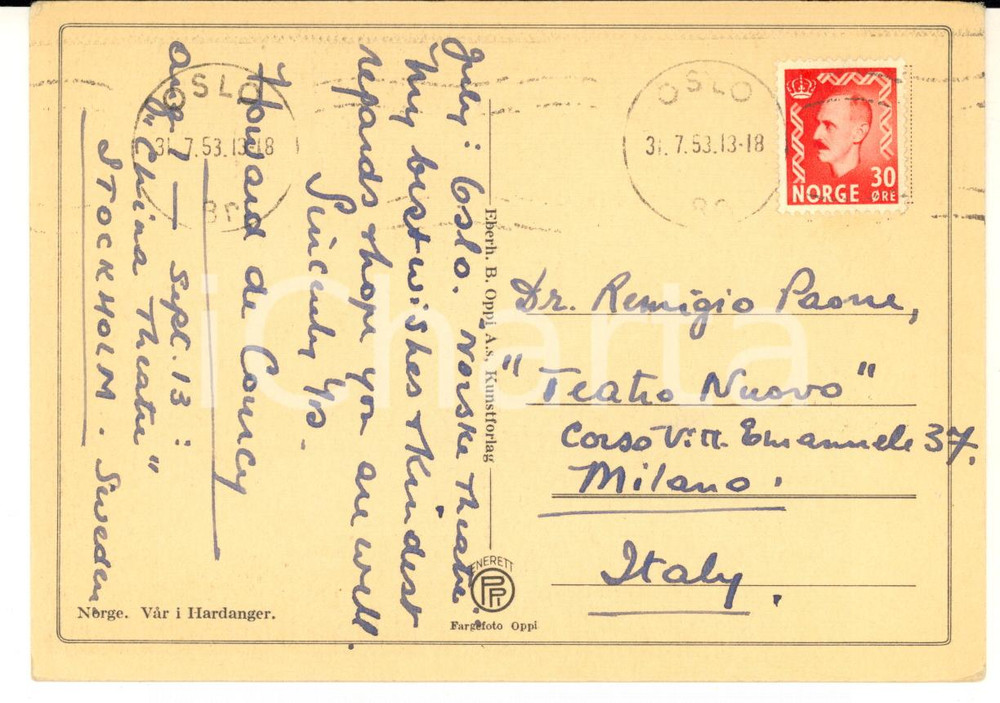 July: Oslo. "Norske Theatre".
My best wishes & Kindest
regards & hope you are well.
Sincerely Yrs.
Howard de Courcy
Aug 7 — Sept. 13:
"China Theatre"
STOCKHOLM. Sweden
OSLO
31.7.53.13-18
BR
OSLO
31.7.53.13-18
NORGE 30
ØRE
Dr. Remigio Paone,
"Teatro Nuovo"
Corso Vitt. Emanuele 37.
Milano.
Italy.
Eberh. B. Oppi A.s, Kunstforlag
ENERETT
PPI
Fargefoto Oppi
Norge. Vår i Hardanger.
iCharta